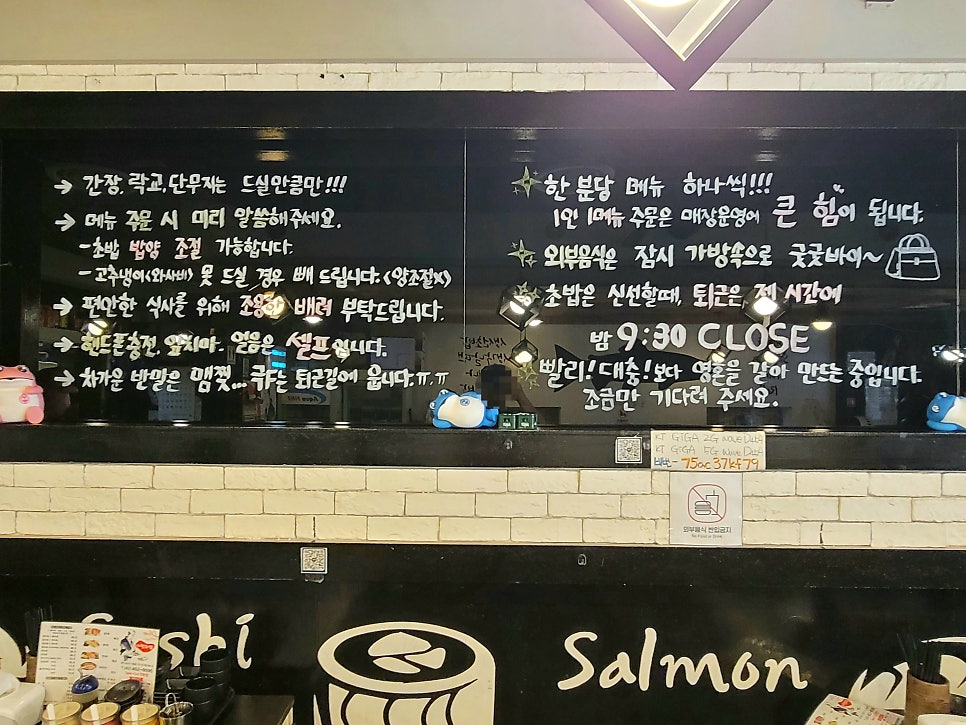 → 간장, 락교, 단무지는 드실만큼만!!!
→ 메뉴 주문 시 미리 말씀해주세요.
- 초밥 밥양 조절 가능합니다.
- 고추냉이<와사비> 못 드실 경우 빼 드립니다.<양조절X>
→ 편안한 식사를 위해 조용한 배려 부탁드립니다.
→ 핸드폰충전, 앞치마, 얼음은 셀프입니다.
→ 차가운 반말은 맴찢... 퇴근길에 웁니다.ㅠ.ㅠ
한 분당 메뉴 하나씩!!!
1인 1메뉴 주문은 매장운영에 큰 힘이 됩니다.
외부음식은 잠시 가방속으로 굿굿바이~
초밥은 신선할때, 퇴근은 제 시간에
밤 9:30 CLOSE
빨리! 대충! 보다 영혼을 갈아 만드는 중입니다.
조금만 기다려 주세요.
KT GIGA 2G WAVE
KT GIGA 5G WAVE
비번- 75ac37kf79
외부음식 반입금지
No Food or Drink
Sushi
Salmon